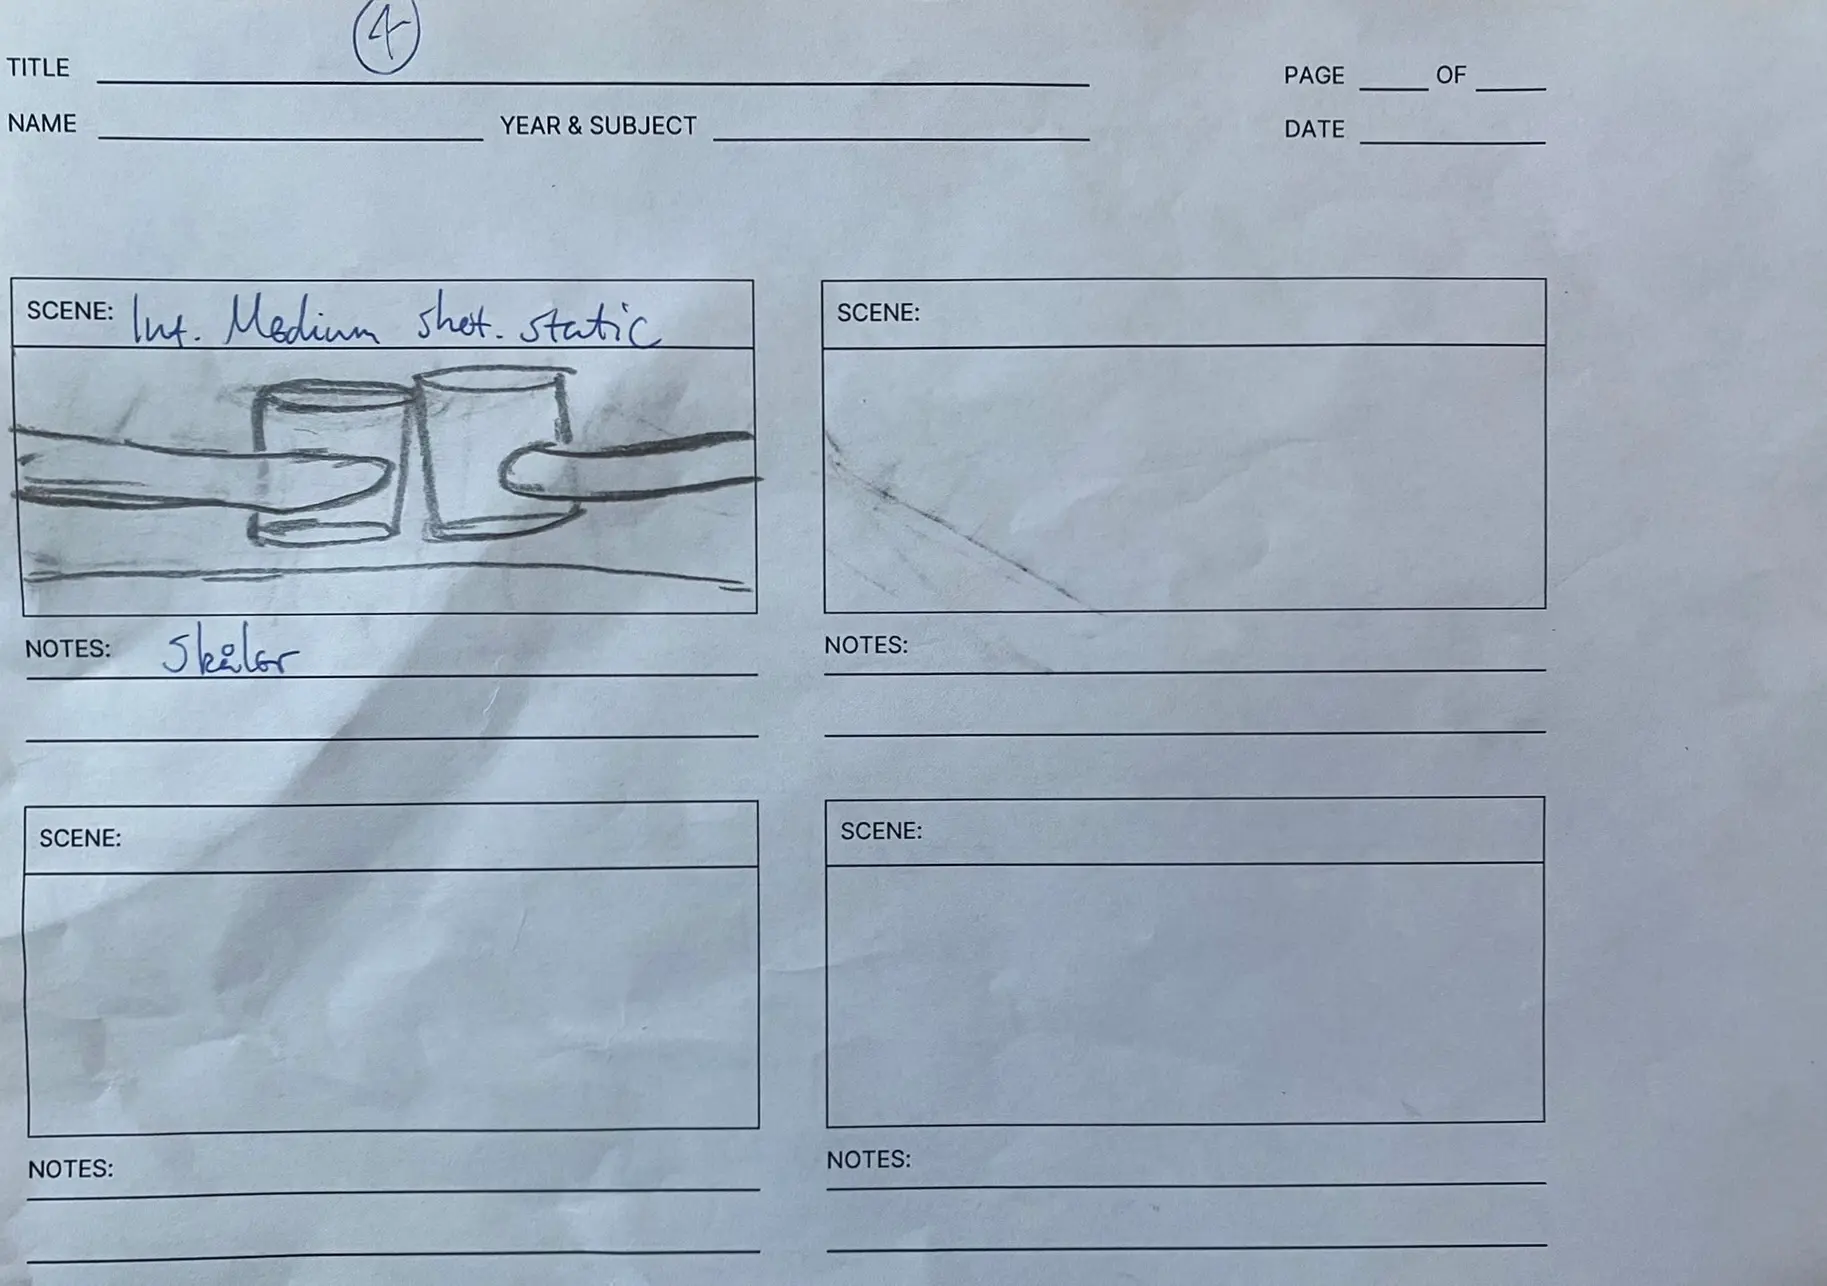 4
TITLE
PAGE OF
NAME YEAR & SUBJECT
DATE
SCENE: Int. Medium shot. static
NOTES: Skålar
SCENE:
NOTES:
SCENE:
NOTES:
SCENE:
NOTES: